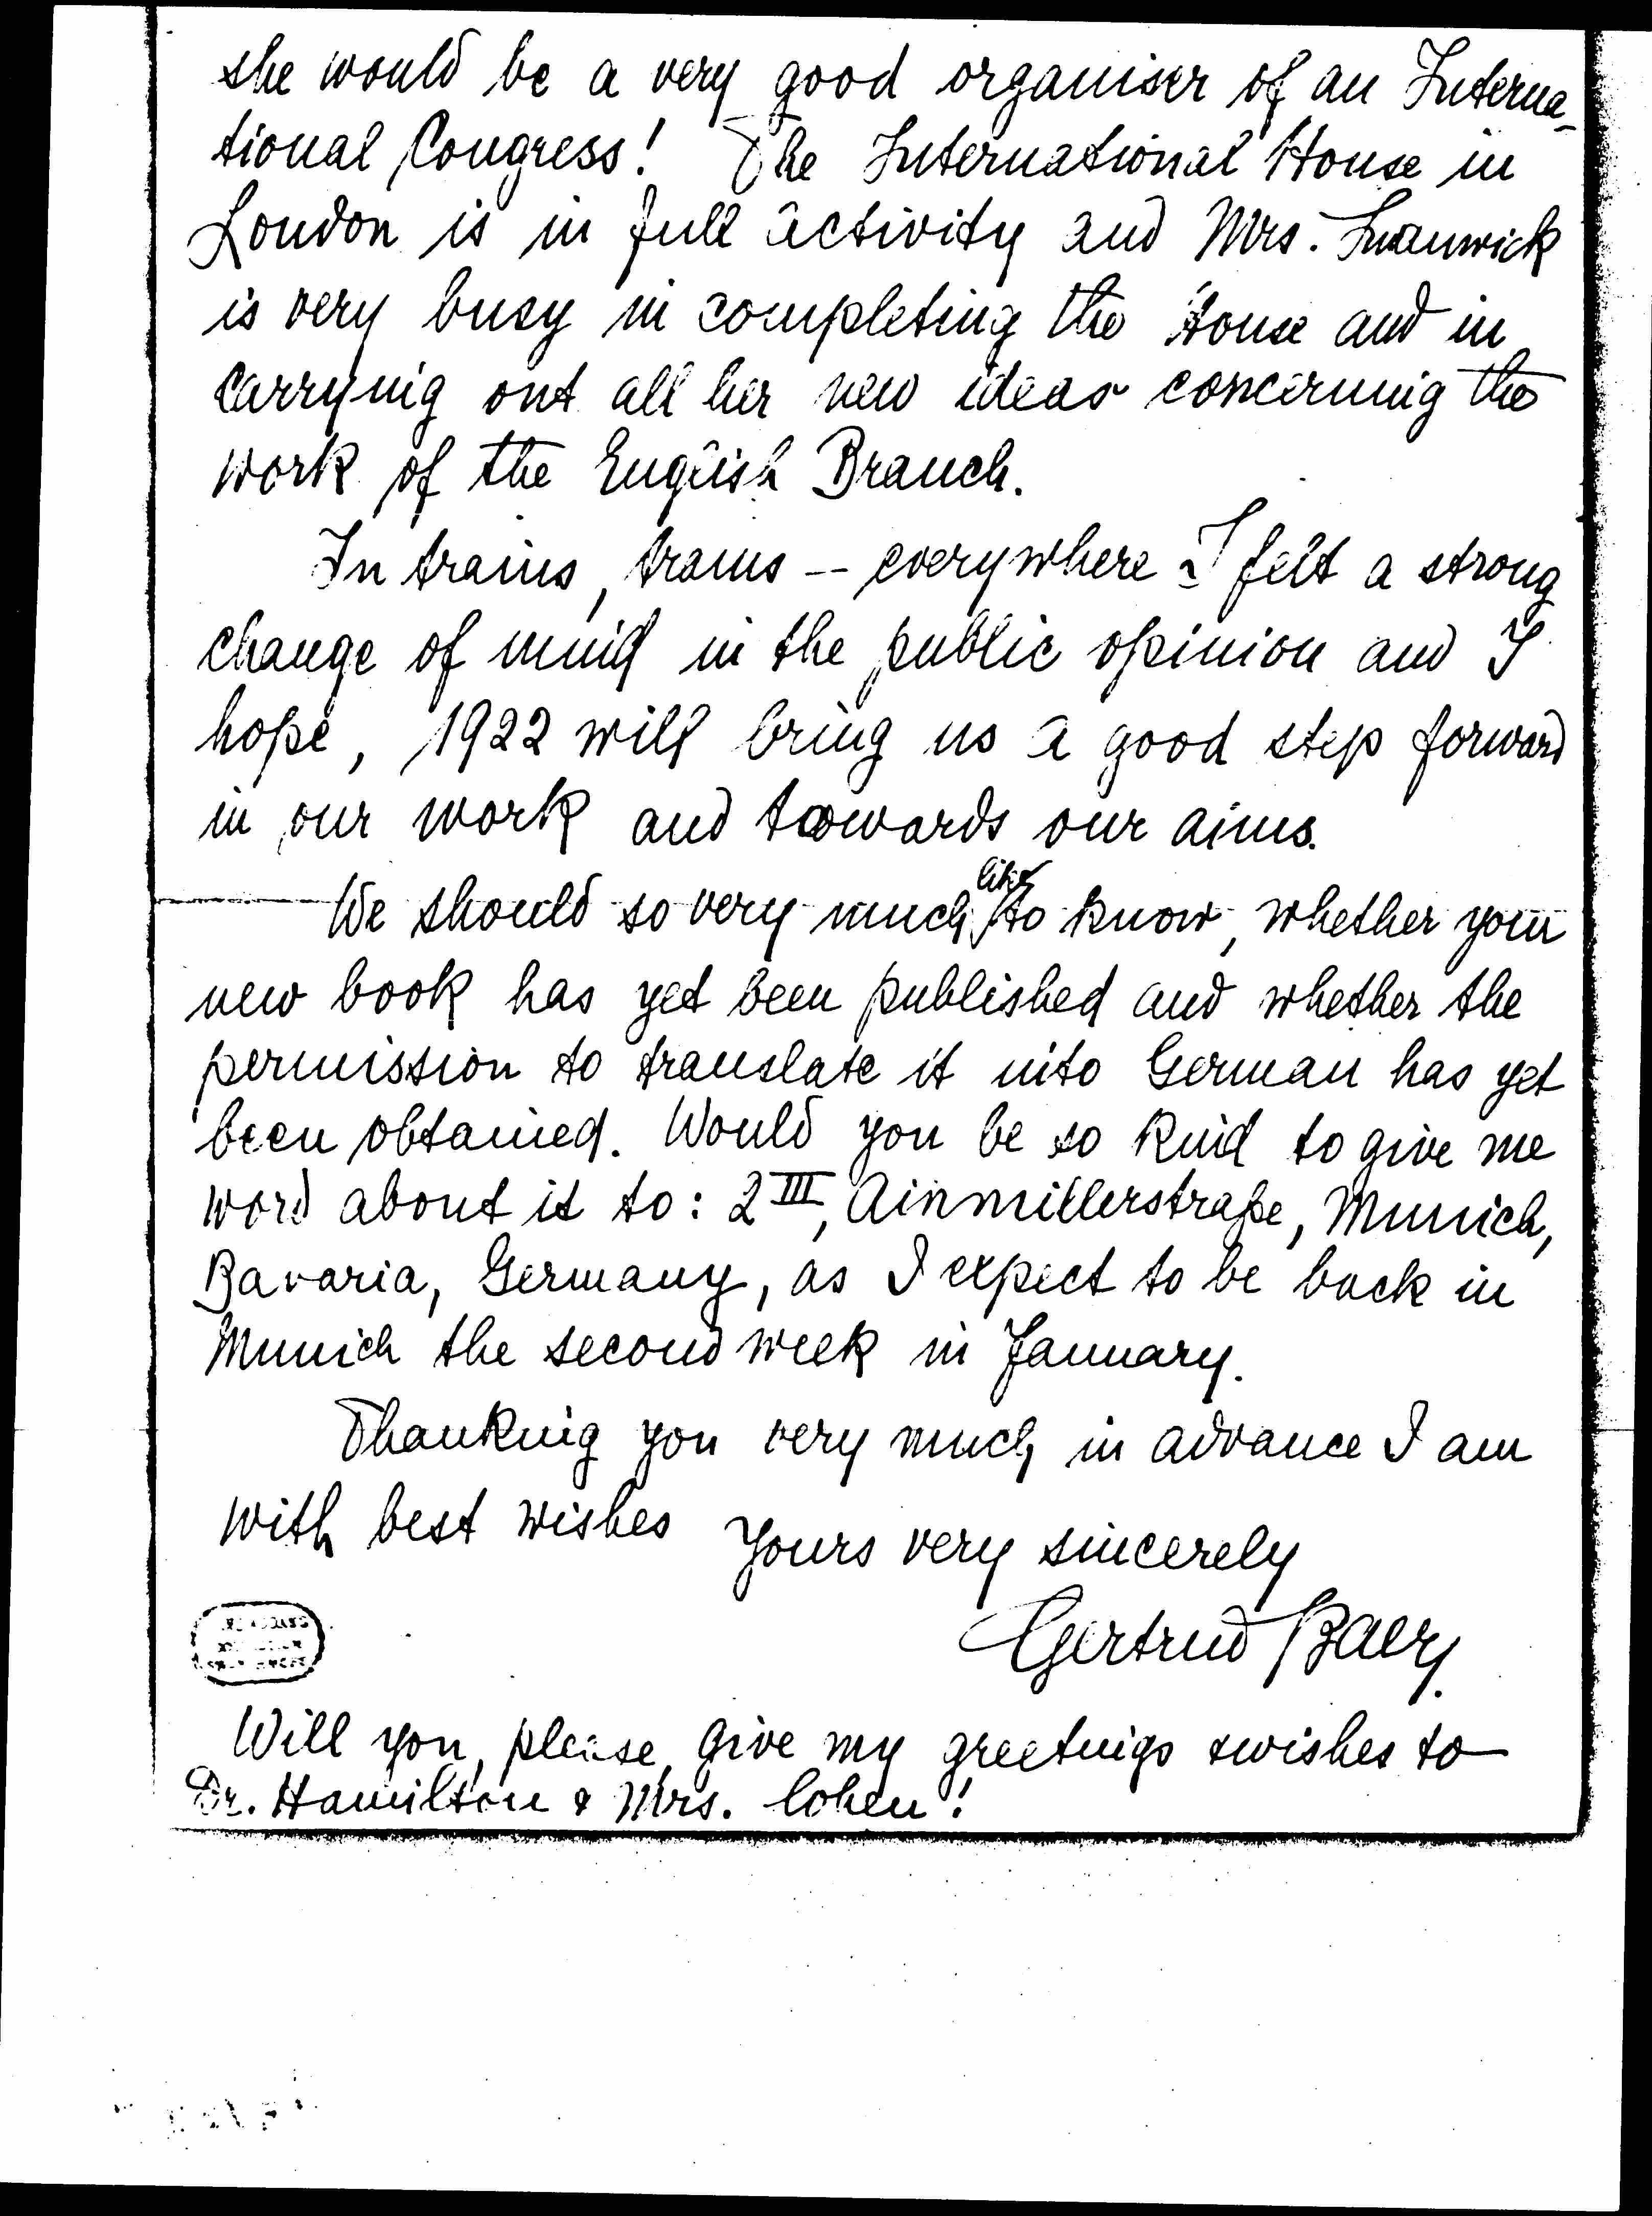 she would be a very good organiser of an Interna-
tional Congress! The International House in
London is in full activity and Mrs. Swanwick
is very busy in completing the House and in
carrying out all her new ideas concerning the
work of the English Branch.
In trains, trams -- everywhere I felt a strong
change of mind in the public opinion and I
hope, 1922 will bring us a good step forward
in our work and towards our aims.
like
We should so very much to know, whether your
new book has yet been published and whether the
permission to translate it into German has yet
been obtained. Would you be so kind to give me
word about it to: 2 III, Ainmillerstraße, Munich,
Bavaria, Germany, as I expect to be back in
Munich the second week in January.
Thanking you very much in advance I am
with best wishes yours very sincerely
Gertrud Baer.
Will you, please, give my greetings & wishes to
Dr. Hamilton & Mrs. Cohen!